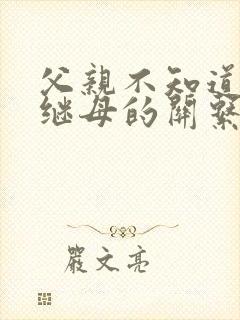 父親不知道
继母的關繫
嚴文亮